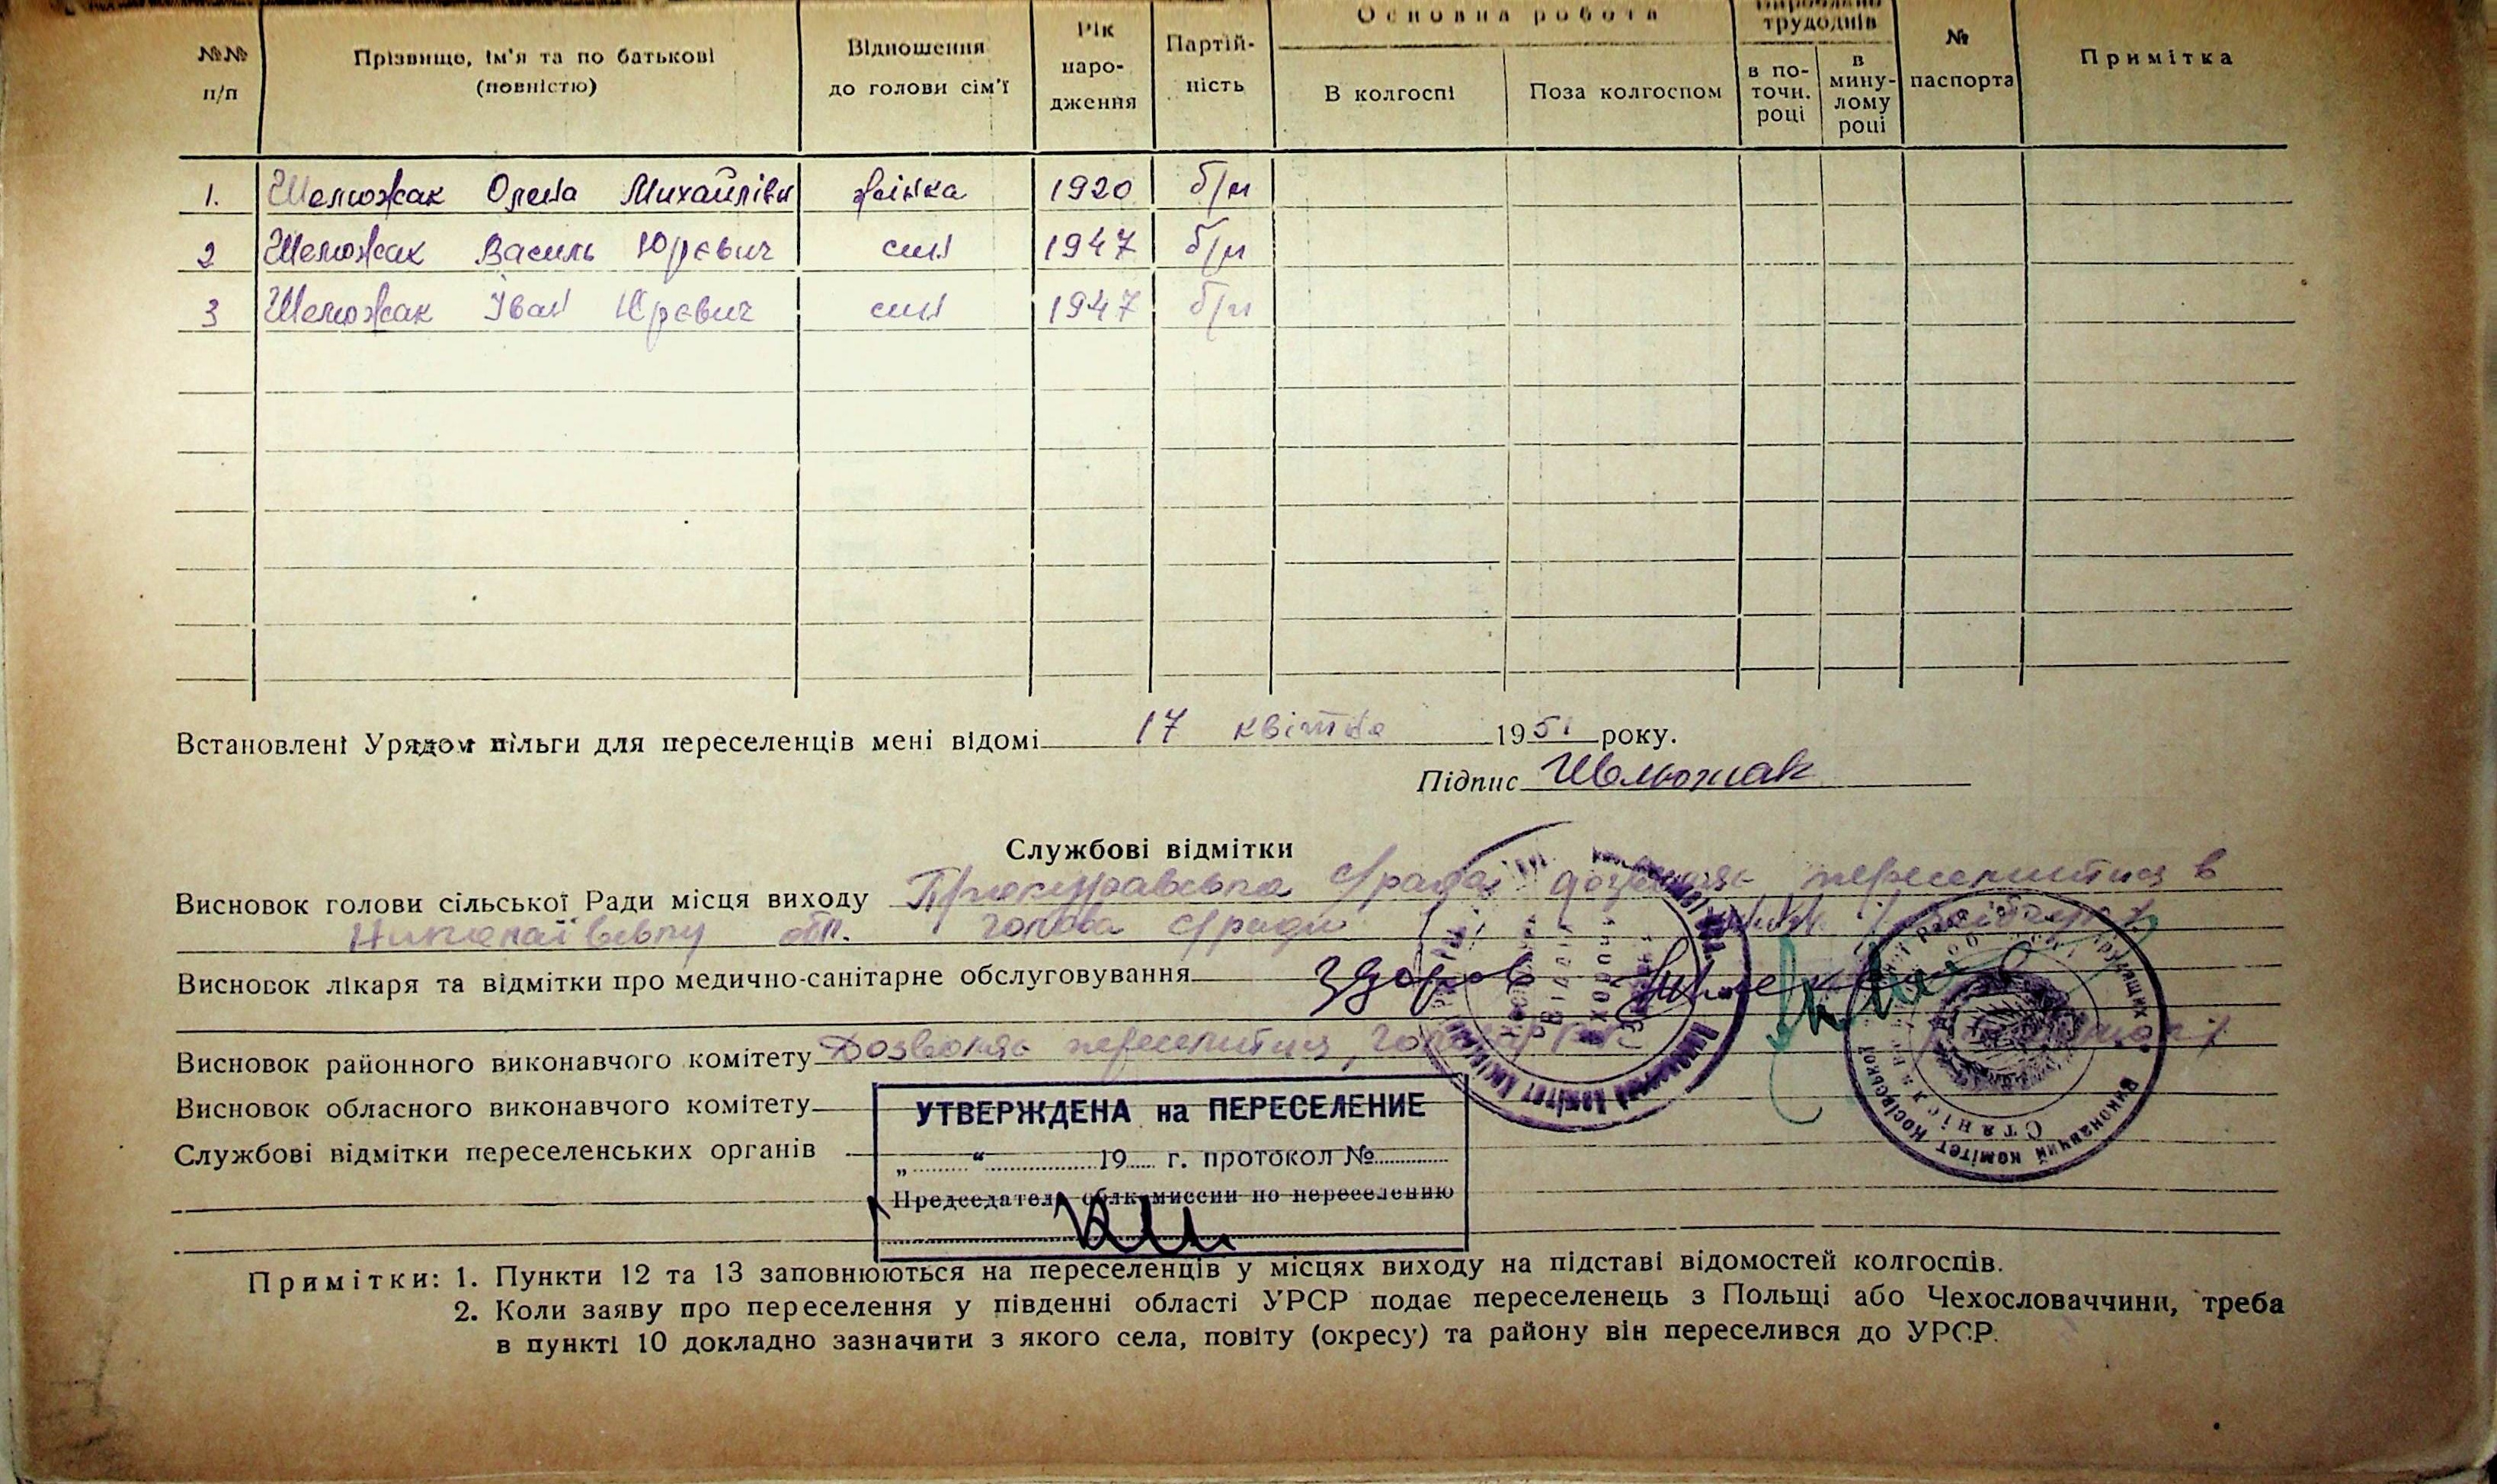 Основна робота
трудоднів
№№ п/п
Прізвище, ім'я та по батькові (повністю)
Відношення до голови сім'ї
Рік народження
Партійність
В колгоспі
Поза колгоспом
в поточн. році
в минулому році
№ паспорта
Примітка
1. Шелюжак Олена Михайлівн жінка 1920 б/п
2 Шелюжак Василь Юрєвич син 1947 б/п
3 Шелюжак Іван Юрєвич син 1947 б/п
Встановлені Урядом пільги для переселенців мені відомі 17 квітня 1951 року.
Підпис Шелюжак
Службові відмітки
Висновок голови сільської Ради місця виходу с/рада дозволяє переселитися в
Миколаївську обл. голова с/ради
Висновок лікаря та відмітки про медично-санітарне обслуговування здоров
Висновок районного виконавчого комітету Дозволяє переселитися,
Висновок обласного виконавчого комітету
Службові відмітки переселенських органів
УТВЕРЖДЕНА на ПЕРЕСЕЛЕНИЕ
„ “ 19 г. протокол №
Председатель облкомиссии по переселению
Виконавчий комітет Косівської
Виконавчий комітет
Примітки: 1. Пункти 12 та 13 заповнюються на переселенців у місцях виходу на підставі відомостей колгоспів.
2. Коли заяву про переселення у південні області УРСР подає переселенець з Польщі або Чехословаччини, треба
в пункті 10 докладно зазначити з якого села, повіту (окресу) та району він переселився до УРСР.